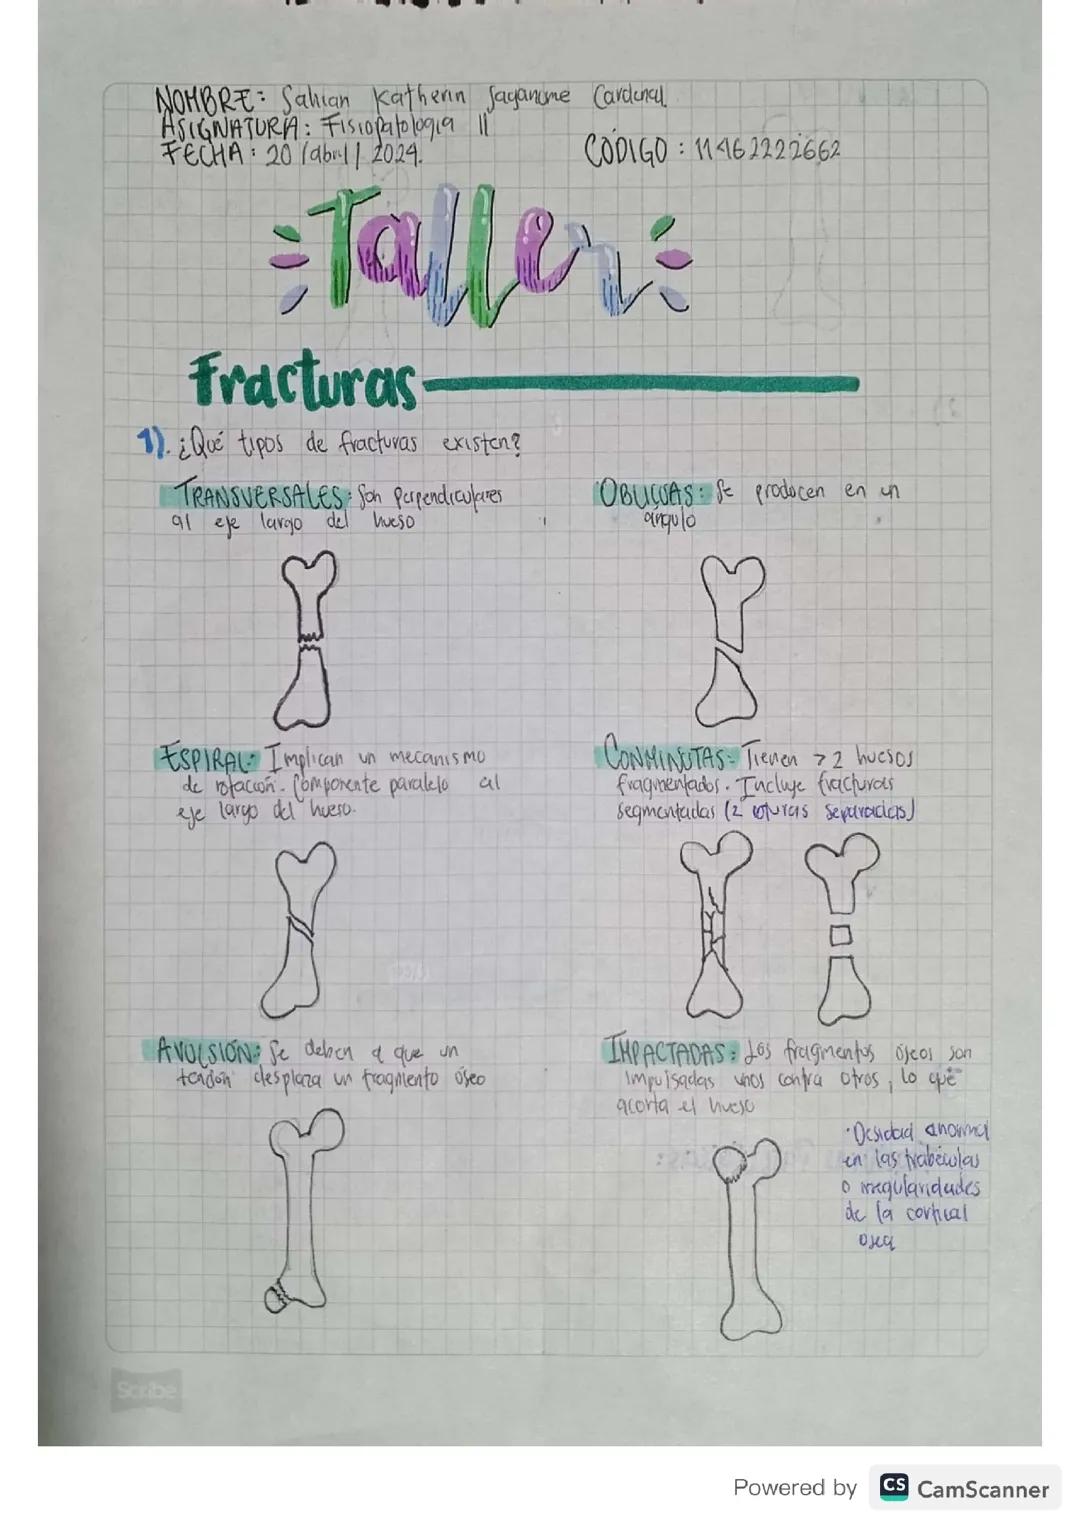 NOMBRE: Sahian Katherin Saganome Cardenal
ASIGNATURA: Fisiopatologia II
FECHA: 20/abril/2024.
CÓDIGO: 11462222662
Taller
Fracturas
1). ¿Qué tipos de fracturas existen?
TRANSVERSALES: Son perpendiculares
al eje largo del hueso
OBLICUAS: Se producen en un
ángulo
ESPIRAL: Implican un mecanismo
de rotación. Componente paralelo al
eje largo del hueso.
CONMINUTAS: Tienen >2 huesos
fragmentados. Incluye fracturas
segmentadas (2 roturas separadas)
AVULSIÓN: Se deben a que un
tendón desplaza un fragmento óseo
IMPACTADAS: Los fragmentos óseos son
impulsadas unos contra otros, lo que
acorta el hueso
·Desidad anormal
en las trabéculas
o irregularidades
de la cortical
osea
Scribe
Powered by CS CamScanner